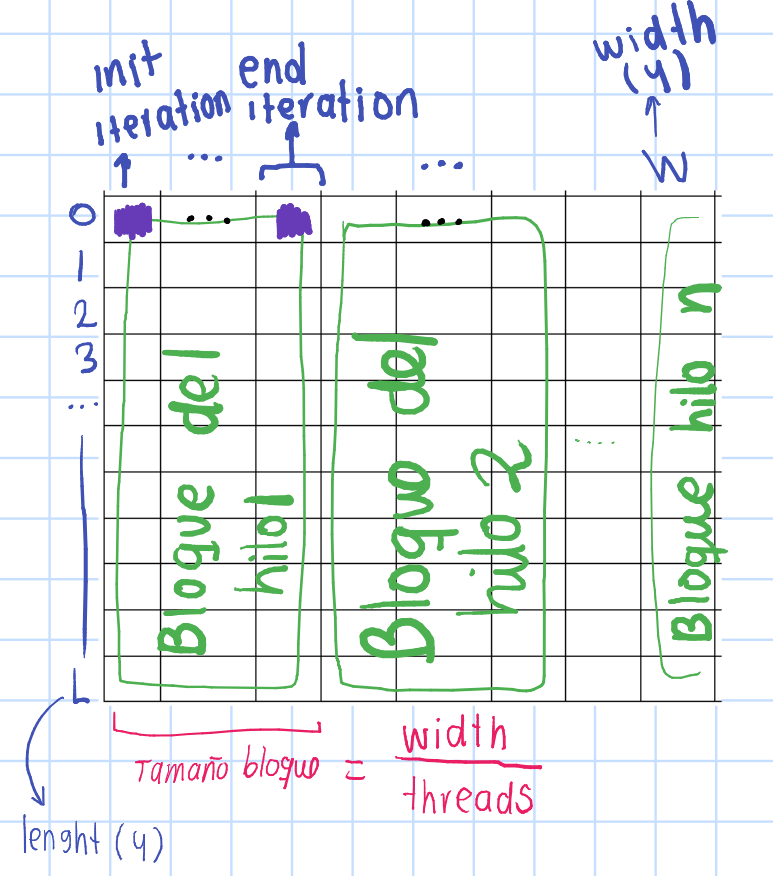 init
iteration
end
iteration
width
(y)
W
...
...
0
1
2
3
...
L
...
...
Bloque del
hilo1
Bloque del
hilo 2
....
Bloque hilo n
Tamaño bloque = width
threads
lenght (y)